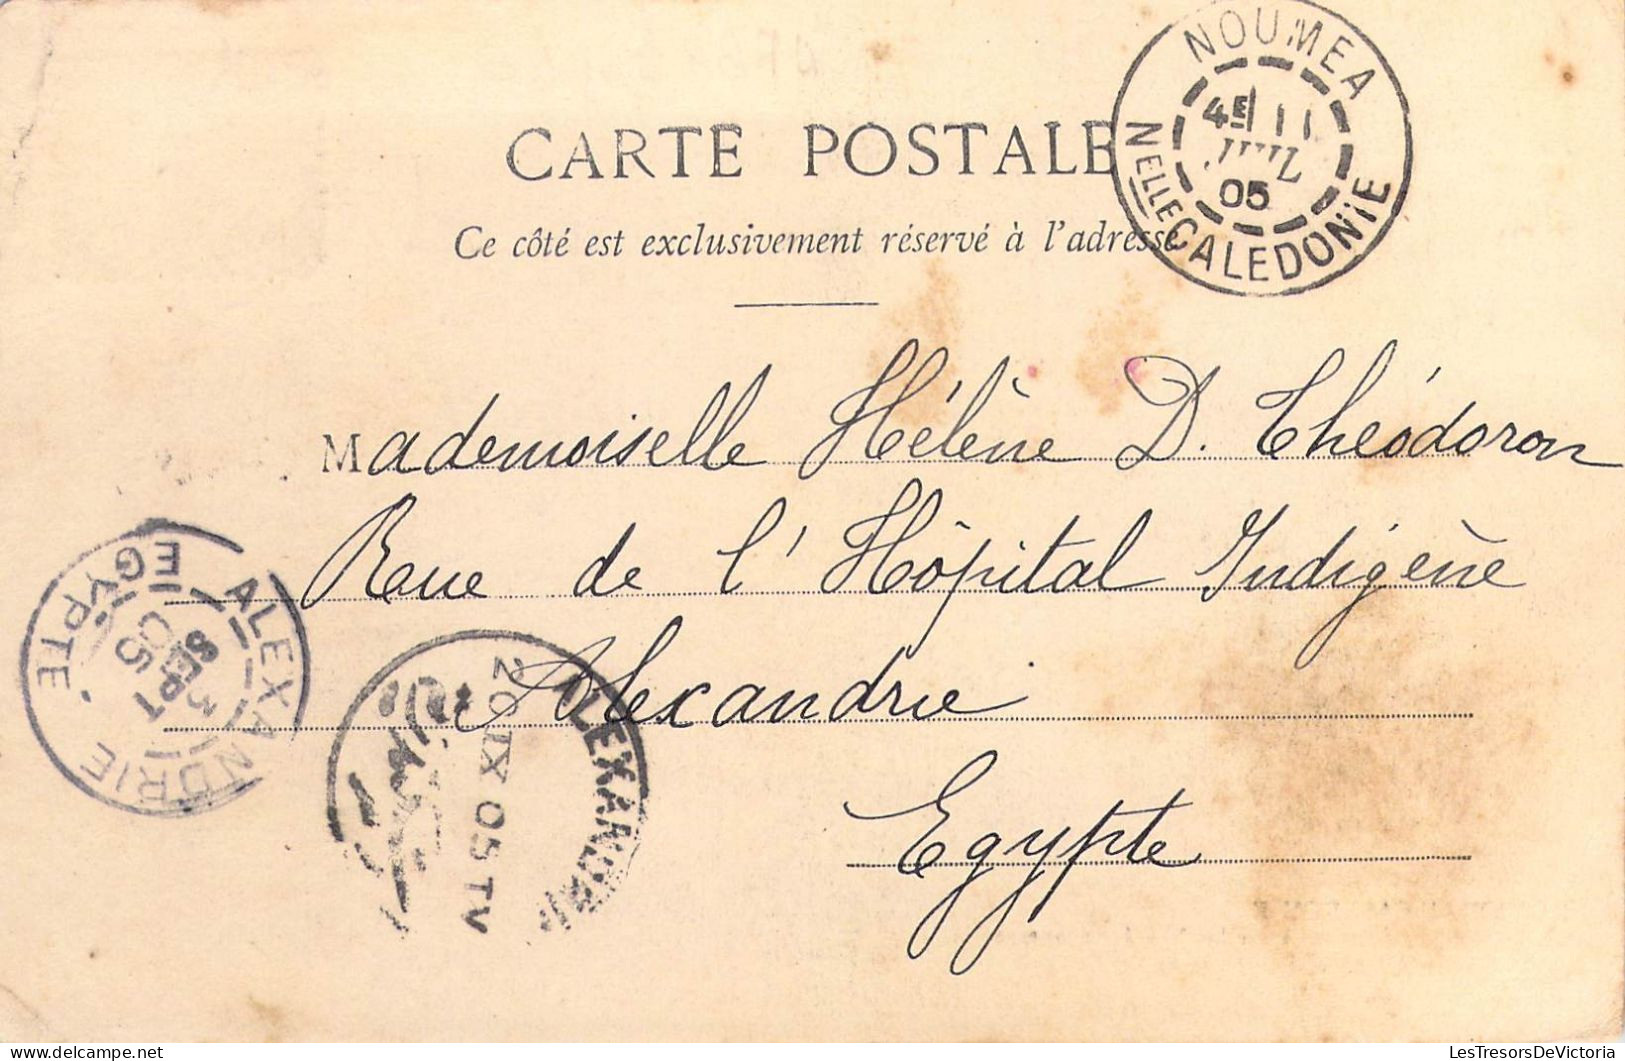 CARTE POSTALE
Ce côté est exclusivement réservé à l'adresse
NOUMEA
4E 11
JUIL
05
NELLE CALEDONIE
Mademoiselle Hélène D. Théodoron
Rue de l'Hôpital Indigène
Alexandrie
Egypte
ALEXANDRIE
EGYPTE
3
SEPT
05
ALEXANDRI
IX 05 TV
LesTresorsDeVictoria.com